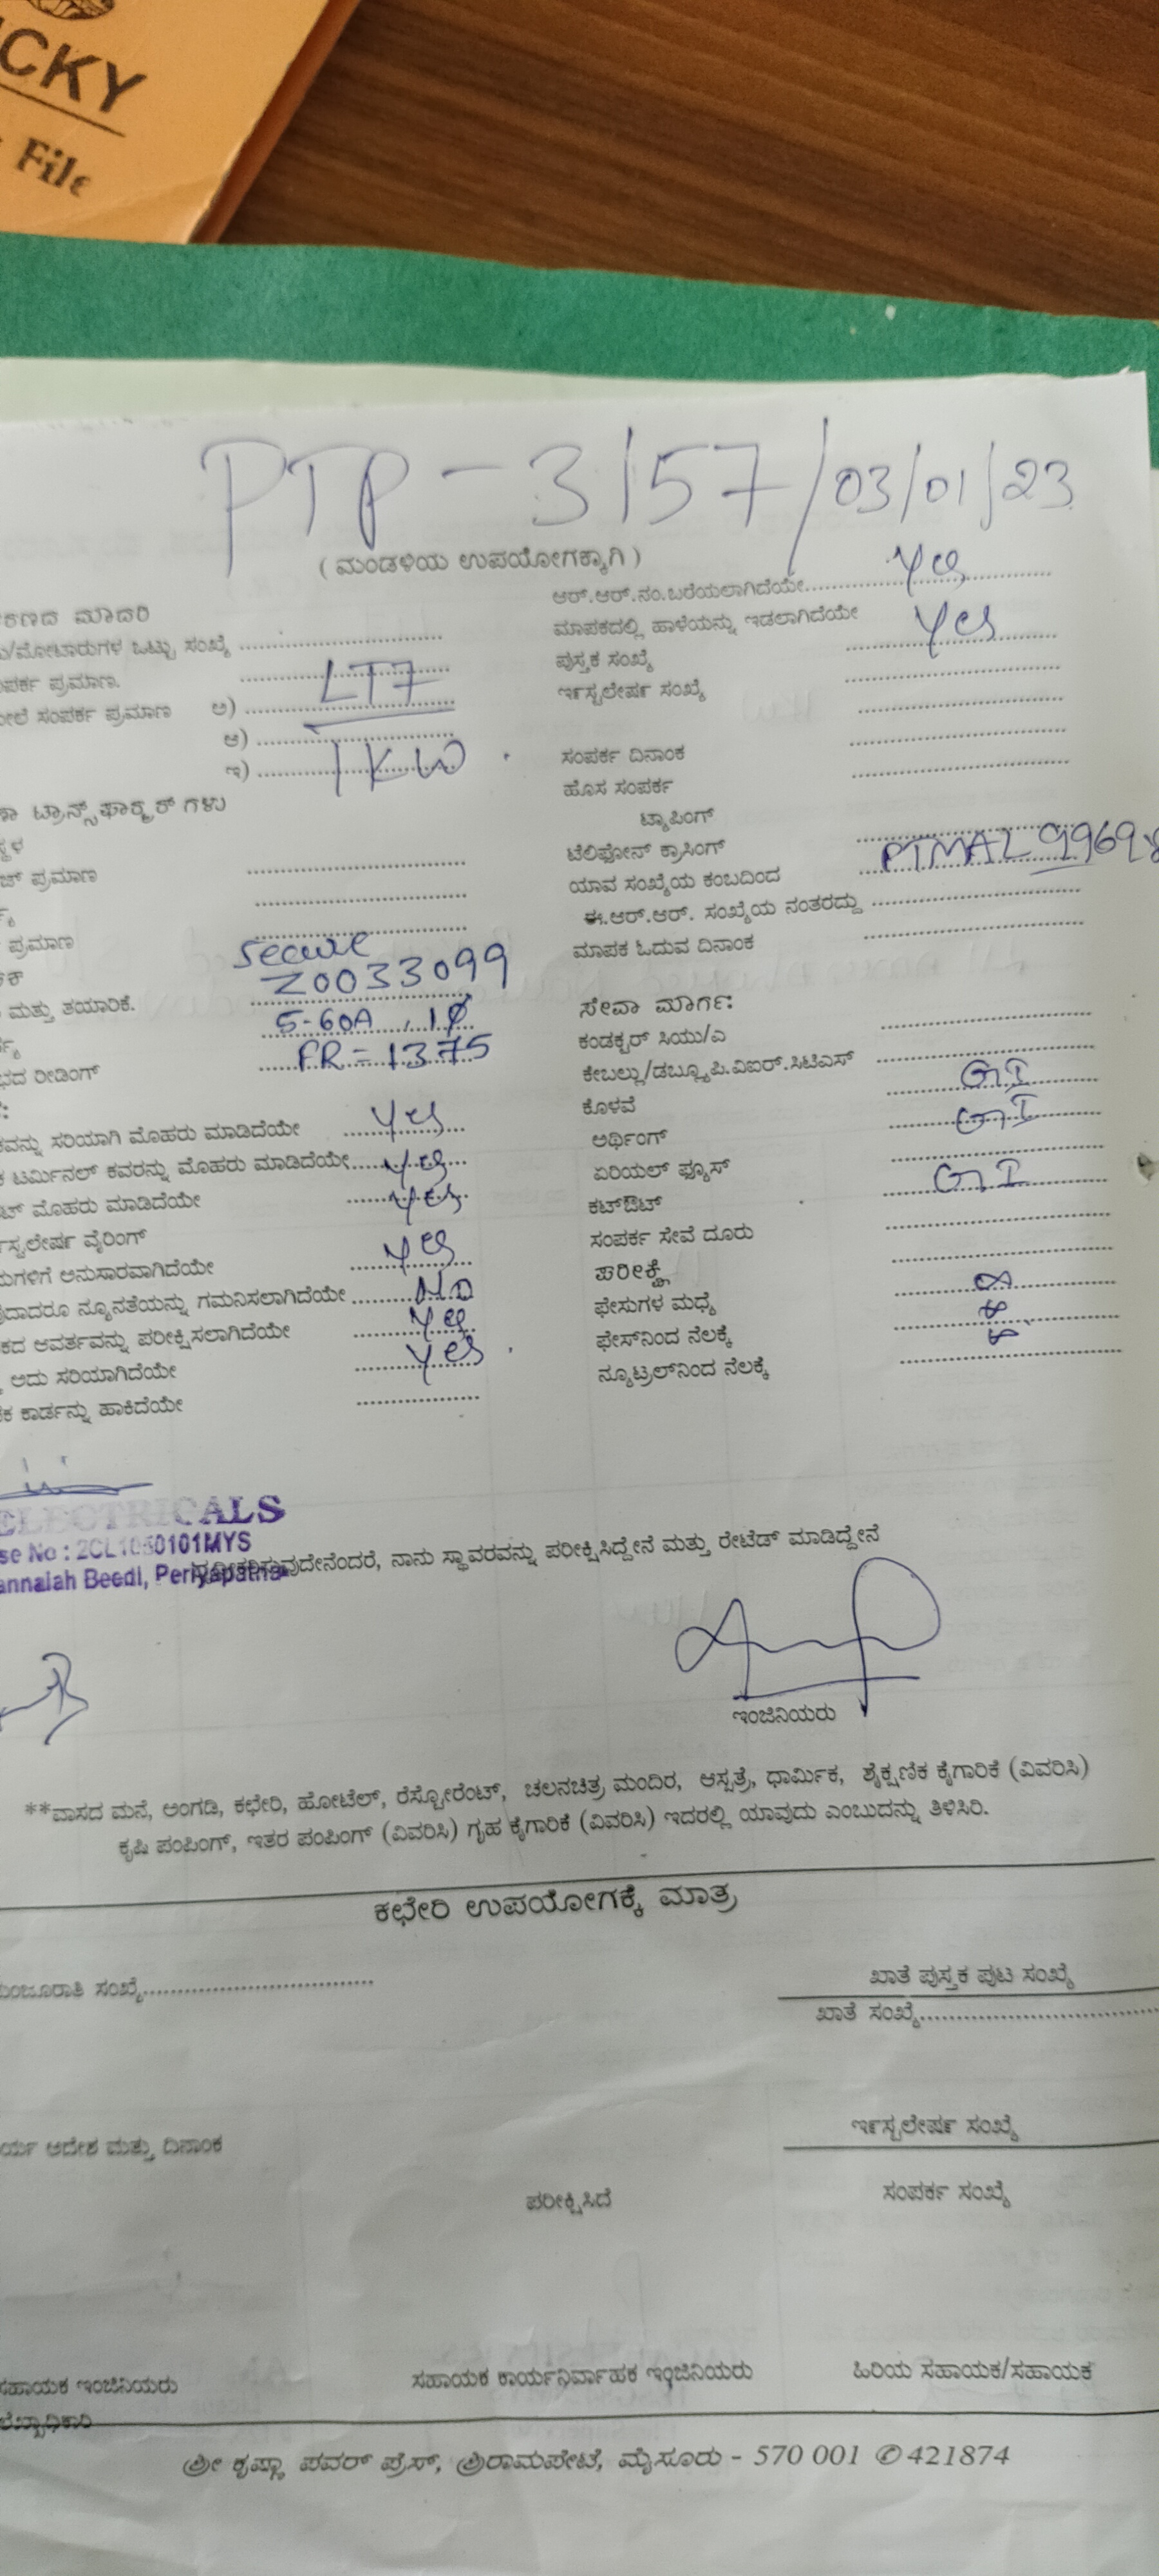 CKY
File
PTP - 3157/03/01/23
( ಮಂಡಳಿಯ ಉಪಯೋಗಕ್ಕಾಗಿ )
ಮಾದರಿ
ಆರ್.ಆರ್.ನಂ.ಬರೆಯಲಾಗಿದೆಯೇ.......... Yes
/ಮೋಟಾರುಗಳ ಒಟ್ಟು ಸಂಖ್ಯೆ ..........
ಮಾಪಕದಲ್ಲಿ ಹಾಳೆಯನ್ನು ಇಡಲಾಗಿದೆಯೇ Yes
ಪ್ರಮಾಣ.
ಪುಸ್ತಕ ಸಂಖ್ಯೆ
ಸಂಪರ್ಕ ಪ್ರಮಾಣ ಅ) LT7
ಇನ್‌ಸ್ಟಲೇಷನ್ ಸಂಖ್ಯೆ
ಆ) ..........
ಇ) 1KW
ಸಂಪರ್ಕ ದಿನಾಂಕ
ಹೊಸ ಸಂಪರ್ಕ
ಟ್ರಾನ್ಸ್‌ಫಾರ್ಮರ್‌ಗಳು
ಟ್ಯಾಪಿಂಗ್
ಟೆಲಿಫೋನ್ ಕ್ರಾಸಿಂಗ್
ಪ್ರಮಾಣ
ಯಾವ ಸಂಖ್ಯೆಯ ಕಂಬದಿಂದ PTMAL
ಈ.ಆರ್.ಆರ್. ಸಂಖ್ಯೆಯ ನಂತರದ್ದು
ಪ್ರಮಾಣ
ಮಾಪಕ ಓದುವ ದಿನಾಂಕ
secure
Z0033099
ಮತ್ತು ತಯಾರಿಕೆ.
ಸೇವಾ ಮಾರ್ಗ:
5-60A, 1Ø
ಕಂಡಕ್ಟರ್ ಸಿಯು/ಎ
ರೀಡಿಂಗ್ FR = 1375
ಕೇಬಲ್ಲು/ಡಬ್ಲ್ಯೂಪಿ.ವಿಐರ್.ಸಿಟಿಎಸ್
ಕೊಳವೆ GI
ಸರಿಯಾಗಿ ಮೊಹರು ಮಾಡಿದೆಯೇ Yes
ಅರ್ಥಿಂಗ್ GI
ಟರ್ಮಿನಲ್ ಕವರನ್ನು ಮೊಹರು ಮಾಡಿದೆಯೇ Yes
ಏರಿಯಲ್ ಫ್ಯೂಸ್
ಮೊಹರು ಮಾಡಿದೆಯೇ Yes
ಕಟ್‌ಔಟ್ GI
ವೈರಿಂಗ್
ಸಂಪರ್ಕ ಸೇವೆ ದೂರು
ಅನುಸಾರವಾಗಿದೆಯೇ Yes
ಪರೀಕ್ಷೆ
ನ್ಯೂನತೆಯನ್ನು ಗಮನಿಸಲಾಗಿದೆಯೇ No
ಫೇಸುಗಳ ಮಧ್ಯೆ
ಆವರ್ತವನ್ನು ಪರೀಕ್ಷಿಸಲಾಗಿದೆಯೇ Yes
ಫೇಸ್‌ನಿಂದ ನೆಲಕ್ಕೆ
ಅದು ಸರಿಯಾಗಿದೆಯೇ Yes
ನ್ಯೂಟ್ರಲ್‌ನಿಂದ ನೆಲಕ್ಕೆ
ಕಾರ್ಡನ್ನು ಹಾಕಿದೆಯೇ
ELECTRICALS
se No : 2CL1050101MYS
annaiah Beedi, Periyapatna
ನಾನು ಸ್ಥಾವರವನ್ನು ಪರೀಕ್ಷಿಸಿದ್ದೇನೆ ಮತ್ತು ರೇಟೆಡ್ ಮಾಡಿದ್ದೇನೆ
ಇಂಜಿನಿಯರು
**ವಾಸದ ಮನೆ, ಅಂಗಡಿ, ಕಛೇರಿ, ಹೋಟೆಲ್, ರೆಸ್ಟೋರೆಂಟ್, ಚಲನಚಿತ್ರ ಮಂದಿರ, ಆಸ್ಪತ್ರೆ, ಧಾರ್ಮಿಕ, ಶೈಕ್ಷಣಿಕ ಕೈಗಾರಿಕೆ (ವಿವರಿಸಿ)
ಕೃಷಿ ಪಂಪಿಂಗ್, ಇತರ ಪಂಪಿಂಗ್ (ವಿವರಿಸಿ) ಗೃಹ ಕೈಗಾರಿಕೆ (ವಿವರಿಸಿ) ಇದರಲ್ಲಿ ಯಾವುದು ಎಂಬುದನ್ನು ತಿಳಿಸಿರಿ.
ಕಛೇರಿ ಉಪಯೋಗಕ್ಕೆ ಮಾತ್ರ
ಮಂಜೂರಾತಿ ಸಂಖ್ಯೆ..........
ಖಾತೆ ಪುಸ್ತಕ ಪುಟ ಸಂಖ್ಯೆ
ಖಾತೆ ಸಂಖ್ಯೆ..........
ಆದೇಶ ಮತ್ತು ದಿನಾಂಕ
ಇನ್‌ಸ್ಟಲೇಷನ್ ಸಂಖ್ಯೆ
ಪರೀಕ್ಷಿಸಿದೆ
ಸಂಪರ್ಕ ಸಂಖ್ಯೆ
ಸಹಾಯಕ ಇಂಜಿನಿಯರು
ಸಹಾಯಕ ಕಾರ್ಯನಿರ್ವಾಹಕ ಇಂಜಿನಿಯರು
ಹಿರಿಯ ಸಹಾಯಕ/ಸಹಾಯಕ
ಲೆಖ್ಖಾಧಿಕಾರಿ
ಶ್ರೀ ಕೃಷ್ಣಾ ಪವರ್ ಪ್ರೆಸ್, ಶ್ರೀರಾಮಪೇಟೆ, ಮೈಸೂರು - 570 001 ✆ 421874